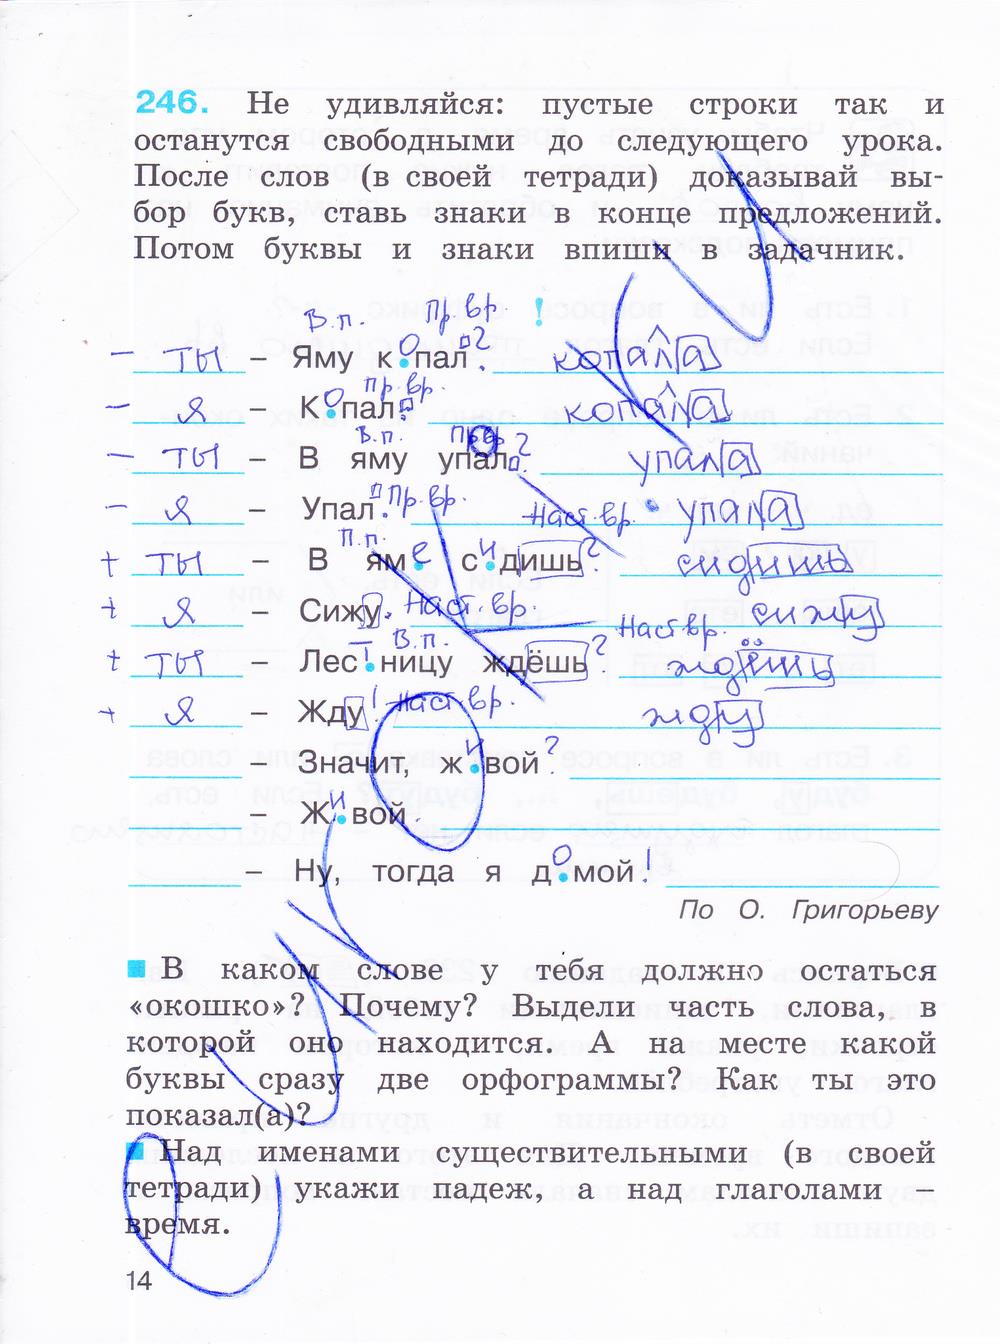 246. Не удивляйся: пустые строки так и
останутся свободными до следующего урока.
После слов (в своей тетради) доказывай вы-
бор букв, ставь знаки в конце предложений.
Потом буквы и знаки впиши в задачник.
В.п. Пр.вр. !
– ты – Яму копал? копала
пр.вр.
– я – Копал. копала
В.п. Пр.вр.
– ты – В яму упал? упала
– я – Упал. Пр.вр. упала
П.п. Наст.вр.
+ ты – В яме сидишь? сидишь
+ я – Сижу. Наст.вр. сижу
В.п. Наст.вр.
+ ты – Лес–ницу ждёшь? ждёшь
+ я – Жду! Наст.вр. жду
– Значит, живой?
– Живой.
– Ну, тогда я домой!
По О. Григорьеву
В каком слове у тебя должно остаться
«окошко»? Почему? Выдели часть слова, в
которой оно находится. А на месте какой
буквы сразу две орфограммы? Как ты это
показал(а)?
Над именами существительными (в своей
тетради) укажи падеж, а над глаголами –
время.
14